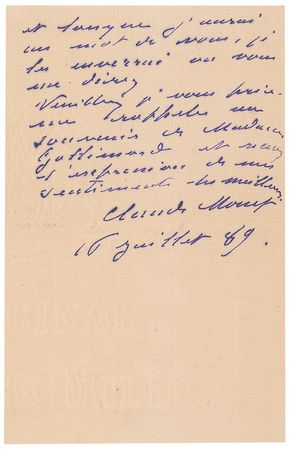 et lorsque j'aurai
un mot de vous, je
les enverrai où vous
me direz
Veuillez je vous prie
me rappeler au
souvenir de Madame
Gallimard et
l'expression de mes
sentiments les meilleurs
Claude Monet
16 juillet 89.